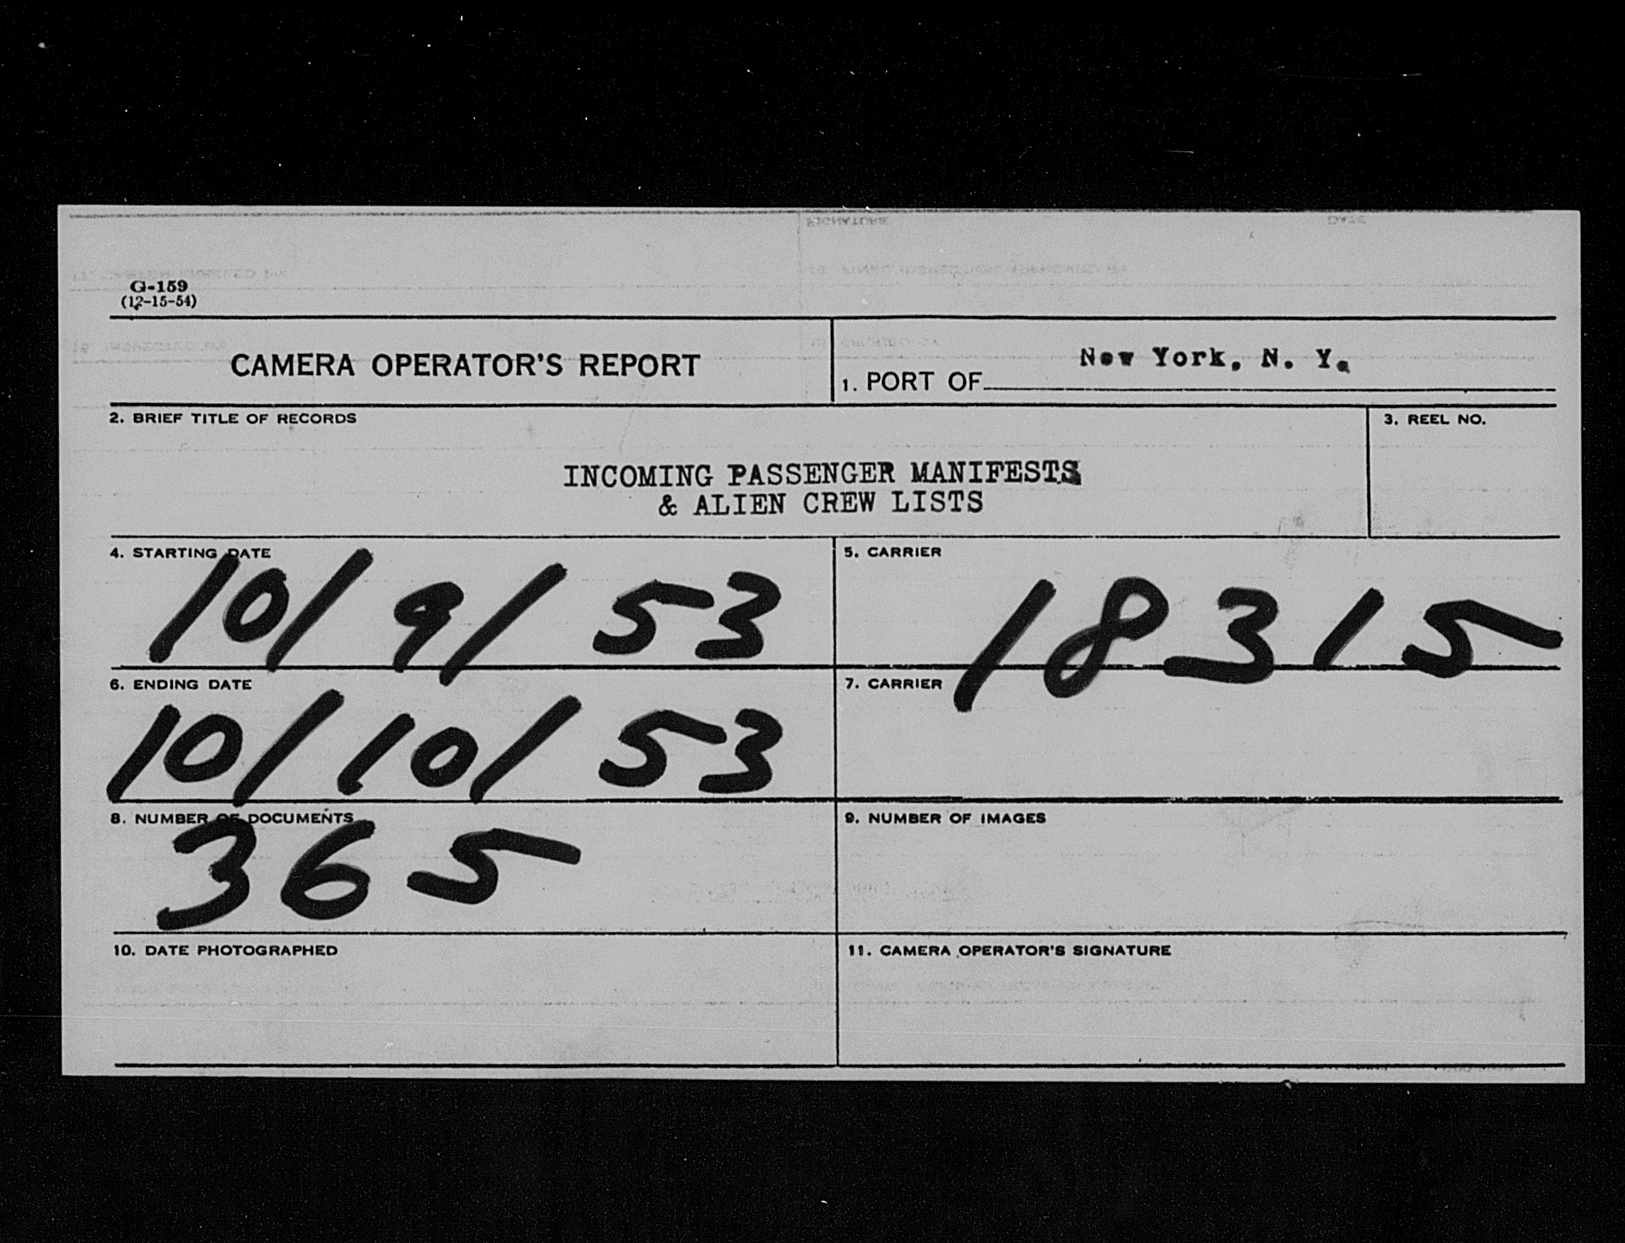 G-159
(12-15-54)
CAMERA OPERATOR'S REPORT
1. PORT OF New York, N. Y.
2. BRIEF TITLE OF RECORDS
3. REEL NO.
INCOMING PASSENGER MANIFESTS
& ALIEN CREW LISTS
4. STARTING DATE
10/9/53
5. CARRIER
18315
6. ENDING DATE
10/10/53
7. CARRIER
8. NUMBER OF DOCUMENTS
365
9. NUMBER OF IMAGES
10. DATE PHOTOGRAPHED
11. CAMERA OPERATOR'S SIGNATURE